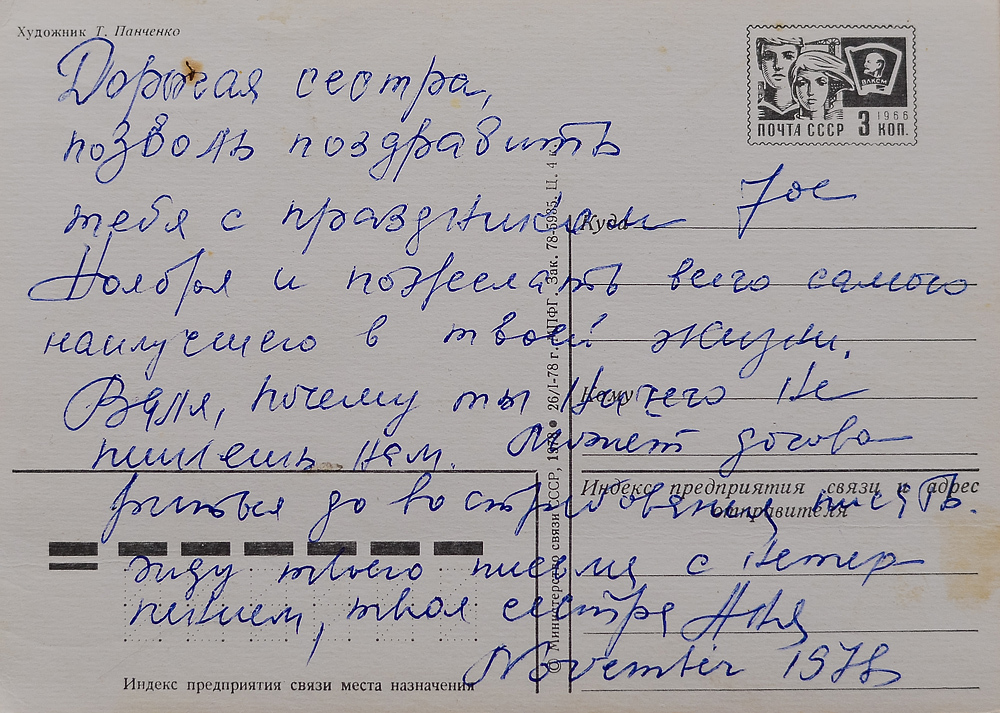 Художник Т. Панченко
ВЛКСМ
1966
ПОЧТА СССР 3 КОП.
Дорогая сестра,
позволь поздравить
тебя с праздником 7ое
Куда
Ноября и пожелать всего самого
наилучшего в твоей жизни.
Валя, почему ты ничего не
Кому
пишешь нам. Может догова
Индекс предприятия связи и адрес
отправителя
риться до востребования писать.
жду твоего письма с нетер
пением, твоя сестра Аня
November 1978
Индекс предприятия связи места назначения
© Министерство связи СССР, 1978 ● 26/I-78 г. МПФГ. Зак. 78-5985. Ц. 4 к.